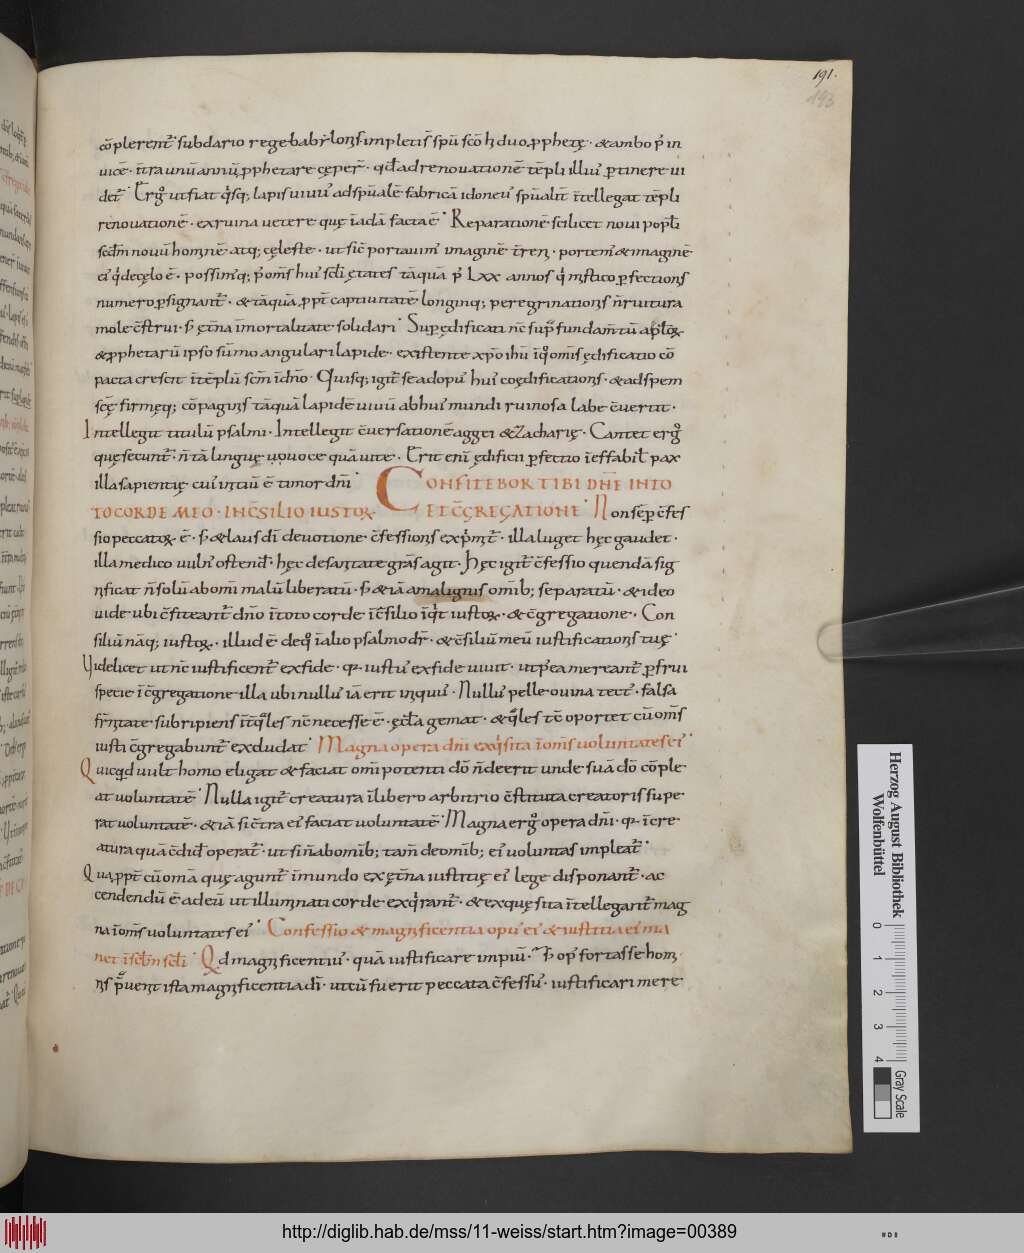 191.
193
cōplerent᷒ · sub dario rege babẏlonis impletis̄ spū scō hi duo ꝓphetę · & ambo ꝑ in
uicē · n̄ra unū annū ꝓphetare ceper̄ · qd̄ ad renouationē tēpli illiuꝰ ꝑtinere ui
det᷒ · Ergͦ ut fiat q̓sq; lapis uiuuꝰ ad spūalē fabricā idoneuꝰ spūalit̄ īt̄ellegat tēpli
renouationē · ex ruina uetere quę ī adā facta ē · Reparationē scilicet noui popl̄i
scd̄m nouū hominē · atq; cęlestē · ut sic̄ portauimꝰ imaginē t̄reni · portemꝰ & imaginē
eiꝰ q̓ de cęlo ē · possimꝰq; p̄ om̄s huiꝰ scl̄i ętates tāquā p̄ Lxx annos q̓ mistico ꝑfectionis
numero ꝑsignant᷒ · & tāquā ꝓpt̄ captiuitatē longinq; peregrinationis n̄ ruitura
mole c̄strui · s; ęt̄na īmortalitate solidari · Supędificati n̄c supͣ fundam̄tū apl̄oꝝ
& ꝓphetarū ipso sūmo angulari lapide · existente xp̄o ihū ī qͦ om̄is ędificatio cō
pacta crescit ī tēplū scm̄ ī dn̄o · Quisq; igit᷒ se ad opuꝰ huiꝰ coędificationis · & ad spem
scę firmęq; cōpaginis tāquā lapidē uiuū ab huiꝰ mundi ruinosa labe c̄uertit ·
Intellegit titulū psalmi · Intellegit c̄uersationē aggei & Zacharię · Cantet ergͦ
quę secunt᷒ · n̄ tā linguę uoce quā uitę · Erit enī ędificii ꝑfectio īeffabil̄ pax
illa sapientię cuiꝰ initiū ē timor dn̄i · CONFITEBOR TIBI DN̄E IN TO
TO CORDE MEO · IN C̄SILIO IUSTOꝝ ET C̄GREGATIONE · Non sēp c̄fes
sio peccatoꝝ ē · s; & laus dī deuotione · c̄fessionis exp̓mit᷒ · illa luget hęc gaudet ·
illa medico uulnꝰ ostendit · hęc de sanitate grās agit · Hęc igit᷒ c̄fessio quendā sig
nificat n̄ solū ab om̄i malū liberatū · s; & iā a malignis om̄ib; separatū · & ideo
uide ubi c̄fiteant᷒ dn̄o ī toto corde ī c̄silio īq̓t iustoꝝ · & c̄gregatione · Con
siliū nāq; iustoꝝ · illud ē de qͦ ī alio psalmo dr̄ · & c̄siliū meū iustificationis tuę ·
Videlicet ut n̄c iustificent᷒ ex fide · qꝫ iustuꝰ ex fide uiuit · ut p̄ea mereant᷒ ꝑfrui
specie ī c̄gregatione illa ubi nulluꝰ iā erit iniquuꝰ · Nulluꝰ pelle ouina tectꝰ · falsa
fr̄nitate subripiens īt̄ qͣles n̄c necesse ē · ęcl̄a gemat · & qͣles tc̄ oportet cū om̄s
iusti c̄gregabunt᷒ excludat · Magna opera dn̄i exq̓sita ī om̄s uoluntates eiꝰ ·
Quicqd uult homo eligat & faciat om̄ipotenti dō n̄ deerit unde suā dō cōple
at uoluntatē · Nulla igit᷒ creatura ī libero arbitrio c̄stituta creatoris supe
rat uoluntatē · & iā si c̄tra eiꝰ faciat uoluntatē · Magna ergͦ opera dn̄i · qꝫ ī cre
atura quā c̄didit operat᷒ · ut si n̄ ab om̄ib; tam̄ de om̄ib; eiꝰ uoluntas impleat᷒ ·
Qua ꝓpt̄ cū om̄ia quę agunt᷒ ī mundo ex ęt̄na iustitię eiꝰ lege disponant᷒ · ac
cendendū ē ad eū ut illuminati corde exq̓rant᷒ · & exquęsita īt̄ellegant᷒ mag
na ī om̄s uoluntates eiꝰ · Confessio & magnificentia opuꝰ eiꝰ & iustitia eiꝰ ma
net ī scl̄m scl̄i · Qd magnificentiuꝰ · quā iustificare impiū · S; opꝰ fortasse homi
nis p̄uenit ista magnificentia dī · ut cū fuerit peccata c̄fessuꝰ · iustificari mere
Herzog August Bibliothek
Wolfenbüttel
0 1 2 3 4
Gray Scale
http://diglib.hab.de/mss/11-weiss/start.htm?image=00389